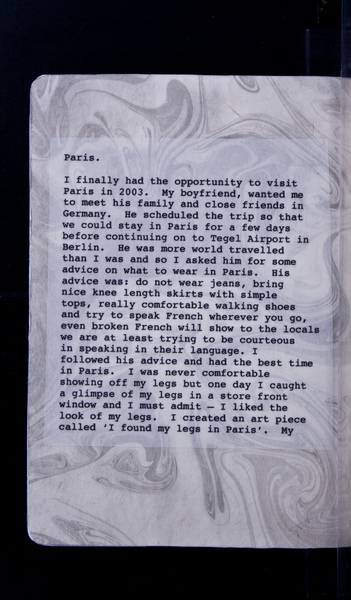 Paris.
I finally had the opportunity to visit
Paris in 2003. My boyfriend, wanted me
to meet his family and close friends in
Germany. He scheduled the trip so that
we could stay in Paris for a few days
before continuing on to Tegel Airport in
Berlin. He was more world travelled
than I was and so I asked him for some
advice on what to wear in Paris. His
advice was: do not wear jeans, bring
nice knee length skirts with simple
tops, really comfortable walking shoes
and try to speak French wherever you go,
even broken French will show to the locals
we are at least trying to be courteous
in speaking in their language. I
followed his advice and had the best time
in Paris. I was never comfortable
showing off my legs but one day I caught
a glimpse of my legs in a store front
window and I must admit – I liked the
look of my legs. I created an art piece
called ‘I found my legs in Paris’. My